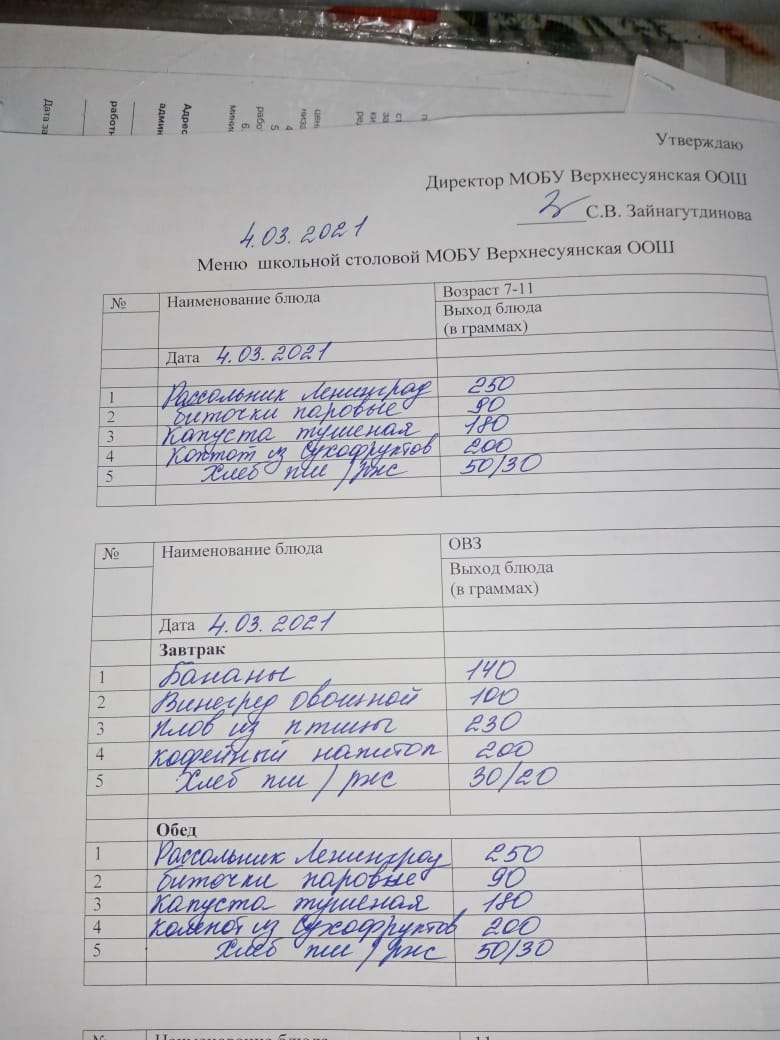 Дата за
работ
админ
Адрес
мини
6.
рабо
5
4
низа
цен
ре
ки
за
ст
п
Утверждаю
Директор МОБУ Верхнесуянская ООШ
С.В. Зайнагутдинова
4.03.2021
Меню школьной столовой МОБУ Верхнесуянская ООШ
№ Наименование блюда Возраст 7-11
Выход блюда
(в граммах)
Дата 4.03.2021
1 Рассольник Ленинград 250
2 биточки паровые 90
3 Капуста тушеная 180
4 Компот из Сухофруктов 200
5 Хлеб пш / рж 50/30
№ Наименование блюда ОВЗ
Выход блюда
(в граммах)
Дата 4.03.2021
Завтрак
1 Бананы 140
2 Винегред овошной 100
3 плов из птицы 230
4 кофейный напиток 200
5 Хлеб пш / рж 30/20
Обед
1 Рассольник Ленинград 250
2 биточки паровые 90
3 Капуста тушеная 180
4 компот из Сухофруктов 200
5 Хлеб пш / рж 50/30
№ Наименование блюда 11